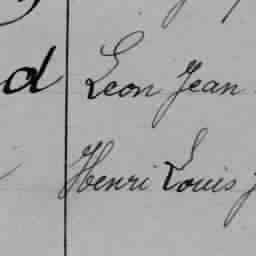 d Leon Jean
Henri Louis